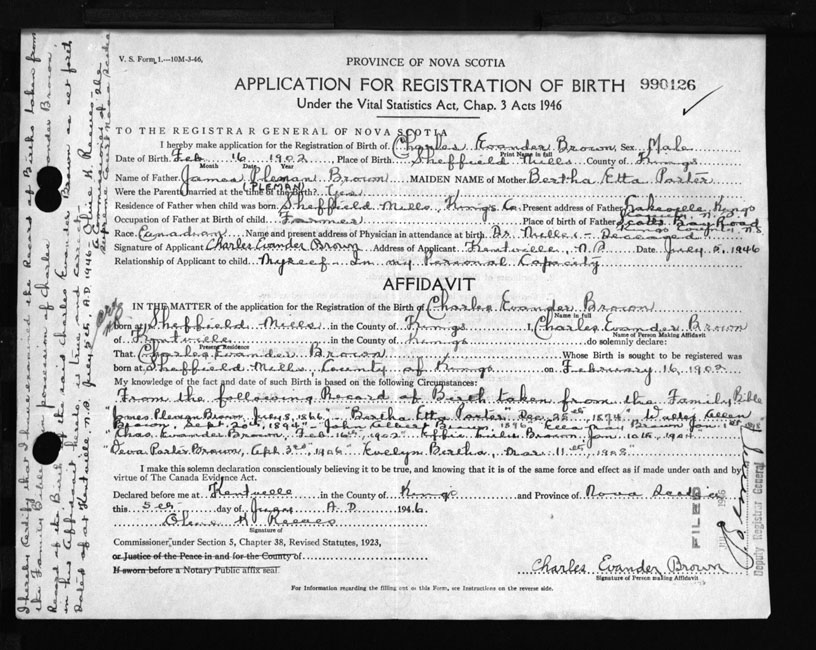 V. S. Form 1.—10M-3-46.
PROVINCE OF NOVA SCOTIA
APPLICATION FOR REGISTRATION OF BIRTH 990126
Under the Vital Statistics Act, Chap. 3 Acts 1946
TO THE REGISTRAR GENERAL OF NOVA SCOTIA
I hereby make application for the Registration of Birth of Charles Evander Brown Sex Male
Print Name in full
Date of Birth Feb 16 1902 Place of Birth Sheffield Mills County of Kings
Month Date Year
Name of Father James Pleman Brown MAIDEN NAME of Mother Bertha Etta Parter
PLEMAN
Were the Parents married at the time of the birth? Yes
Residence of Father when child was born Sheffield Mills, Kings Co. Present address of Father Kings
Occupation of Father at Birth of child Farmer Place of birth of Father Scotts Bay Road
Kings County N.S.
Race Canadian Name and present address of Physician in attendance at birth Dr Miller - Deceased
Signature of Applicant Charles Evander Brown Address of Applicant Kentville, N.S Date July 5, 1946
Relationship of Applicant to child Myself - In my Personal Capacity
AFFIDAVIT
IN THE MATTER of the application for the Registration of the Birth of Charles Evander Brown
Name in full
born at Sheffield Mills in the County of Kings I, Charles Evander Brown
Name of Person Making Affidavit
of Kentville in the County of Kings do solemnly declare:
Present Residence
That Charles Evander Brown Whose Birth is sought to be registered was
born at Sheffield Mills, County of Kings on February 16, 1902
My knowledge of the fact and date of such Birth is based on the following Circumstances:
From the following Record of Birth taken from the Family Bible
James Pleman Brown, July 8, 1866" - "Bertha Etta Parter" Dec 25th, 1874" Allen
Brown, Sept. 20th, 1894" - John Albert 1896 Brown Jan 1st
"Chas. Evander Brown, Feb 16th, 1902" Brown, Jan. 10th, 1904
Parter Brown, Apl. 3rd, 1906" "Evelyn Bertha, Mar. 11th, 1908"
I make this solemn declaration conscientiously believing it to be true, and knowing that it is of the same force and effect as if made under oath and by
virtue of The Canada Evidence Act.
Declared before me at Kentville in the County of Kings and Province of Nova Scotia
this 5th day of July A.D. 1946
Olive H Reeves
Signature of
Commissioner under Section 5, Chapter 38, Revised Statutes, 1923,
or Justice of the Peace in and for the County of
If sworn before a Notary Public affix seal.
Charles Evander Brown
Signature of Person Making Affidavit
For Information regarding the filling out of this Form, see Instructions on the reverse side.
I hereby certify that I have examined the Record of Births taken from
the Family Bible in possession of Charles Evander Brown
Record of the Birth of the said Charles Evander Brown as set forth
in this Affidavit hereto, is true and correct
Dated at Kentville, N.S. July 5th, A.D. 1946 Olive H. Reeves
FILED
Deputy Registrar General